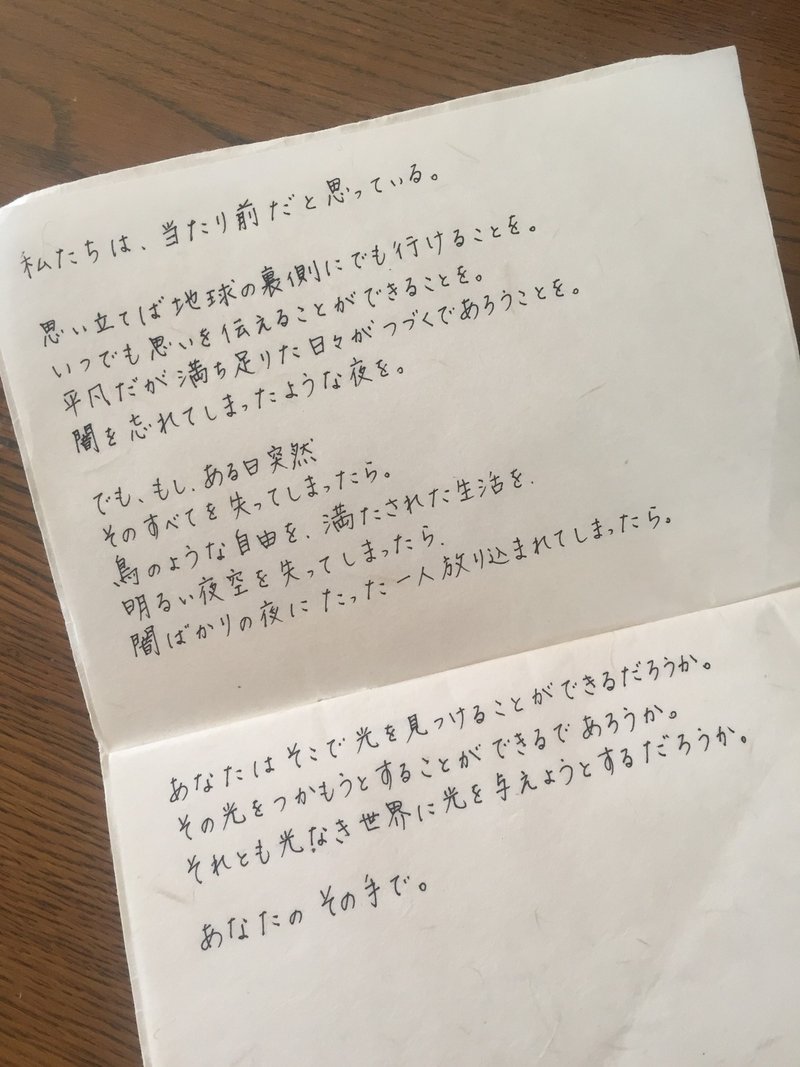 私たちは、当たり前だと思っている。
思い立てば地球の裏側にでも行けることを。
いつでも思いを伝えることができることを。
平凡だが満ち足りた日々がつづくであろうことを。
闇を忘れてしまったような夜を。
でも、もし、ある日突然
そのすべてを失ってしまったら。
鳥のような自由を、満たされた生活を、
明るい夜空を失ってしまったら、
闇ばかりの夜にたった一人放り込まれてしまったら。
あなたはそこで光を見つけることができるだろうか。
その光をつかもうとすることができるであろうか。
それとも光なき世界に光を与えようとするだろうか。
あなたのその手で。